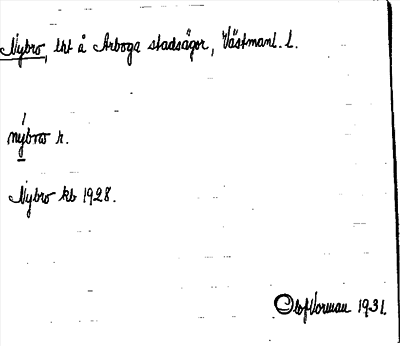 Nybro, lht å Arboga stadsägor, Västmanl. l.
nybrω r.
Nybro kb 1928.
Olof Vorman 1931.